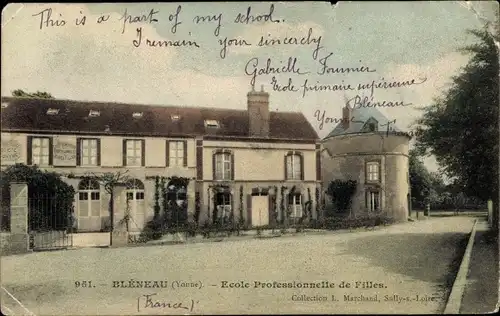 This is a part of my school.
I remain your sincerely
Gabrielle Fournier
Ecole primaire supérieure
Bléneau
Yonne
951. - BLÉNEAU (Yonne) - Ecole Professionnelle de Filles.
Collection L. Marchand, Sully-s.-Loire
(France)